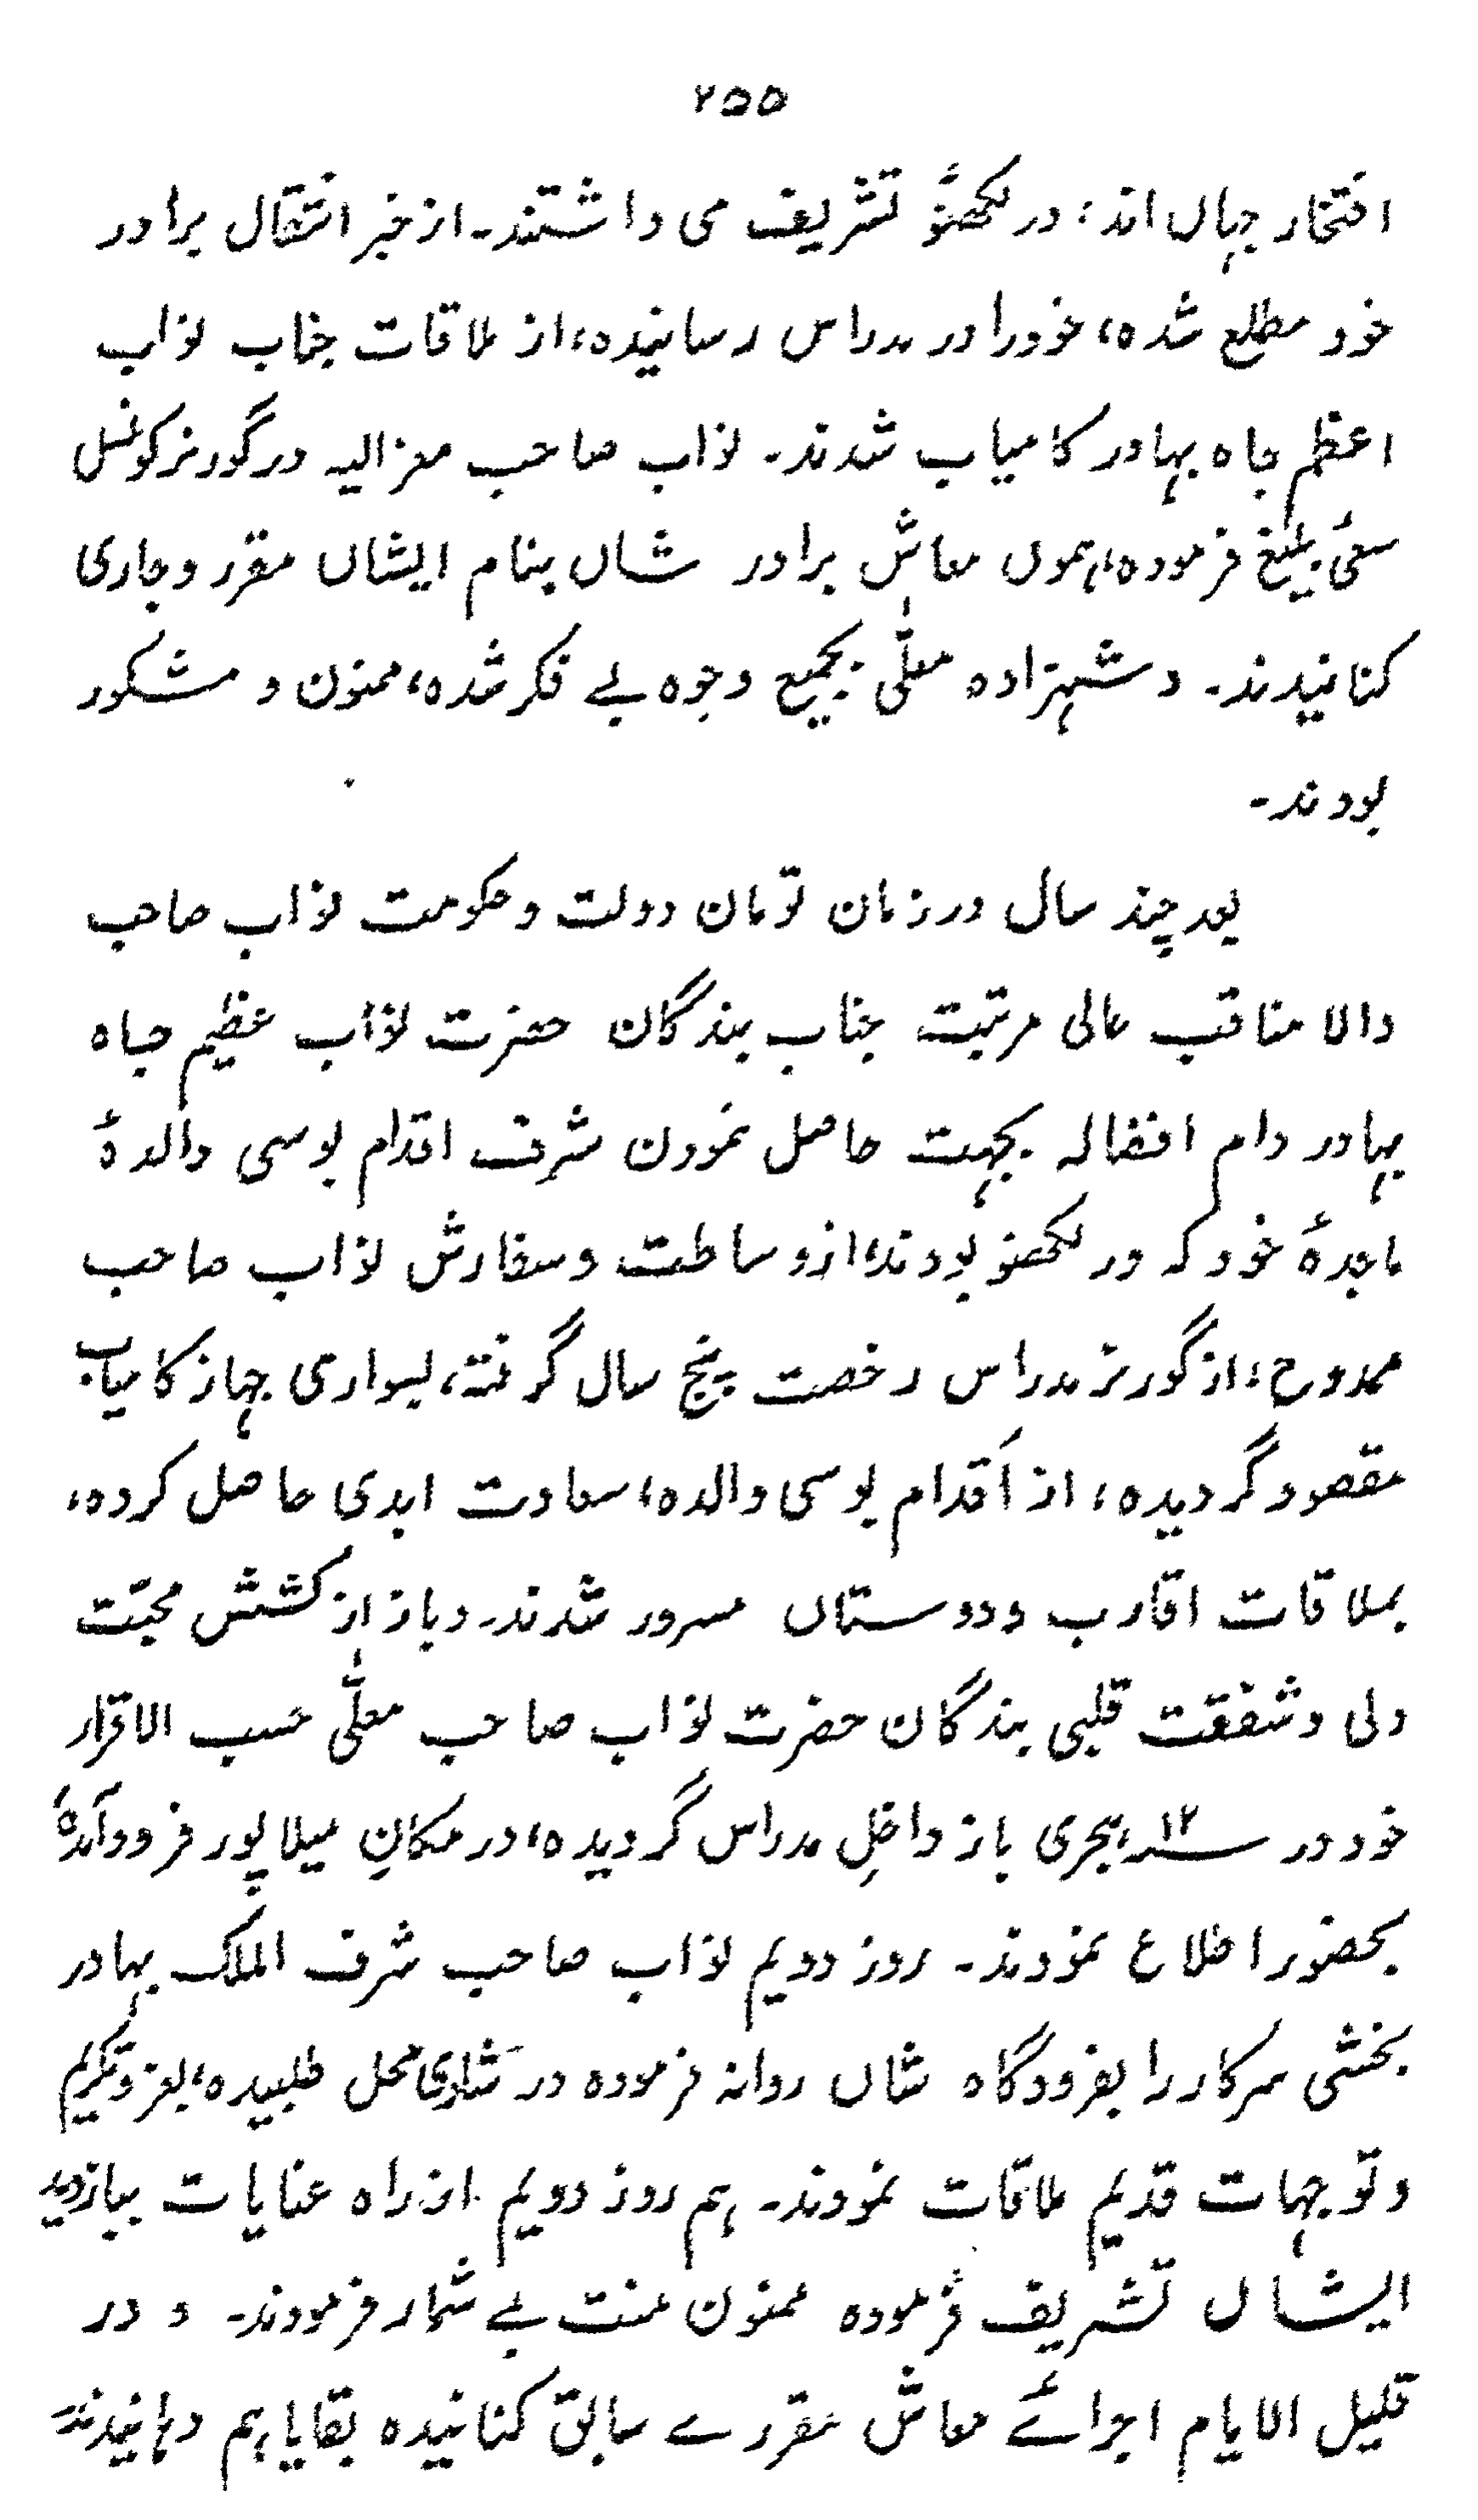 ۲۵۵
افتخار جہاں اند، در لکھنؤ تشریف می داشتند۔ از خبر انتقال برادر
خود مطلع شدہ، خود را در مدراس رسانیدہ، از ملاقات جناب نواب
اعظم جاہ بہادر کامیاب شدند۔ نواب صاحب معزالیہ در گورنر کونسل
سعئ بلیغ فرمودہ، ہموں معاش برادر شاں بنام ایشاں مقرر و جاری
کنانیدند۔ و شہزادہ معلّٰی بجمیع وجوہ بے فکر شدہ، ممنون و مشکور
بودند۔
بعد چند سال در زمان تومان دولت و حکومت نواب صاحب
والا مناقب عالی مرتبت جناب بندگان حضرت نواب عظیم جاہ
بہادر دام افضالہ بجہت حاصل نمودن شرف اقدام بوسی والدۂ
ماجدۂ خود کہ در لکھنؤ بودند، از وساطت و سفارش نواب صاحب
ممدوح، از گورنر مدراس رخصت پنج سال گرفتہ، بسواری جہاز کامیاب
مقصود گردیدہ، از اَقدام بوسی والدہ، سعادت ابدی حاصل کردہ،
بملاقات اقارب و دوستاں مسرور شدند۔ و باز از کشش محبّت
دلی و شفقت قلبی بندگان حضرت نواب صاحب معلّٰی حسب الاقرار
خود در سنہ ۱۲ ہجری باز داخلِ مدراس گردیدہ، در مکانِ میلاپور فرود آمدۂ
بحضور اطلاع نمودند۔ روز دویم نواب صاحب شرف الملک بہادر
بخشی سرکار را بفرودگاہ شاں روانہ فرمودہ در شادی محل طلبیدہ، بعز و تکریم
و توجہات قدیم ملاقات نمودند۔ ہم روز دویم از راہ عنایات ببازدید
ایشاں تشریف فرمودہ ممنون منت بے شمار فرمودند۔ و در
قلیل الایام اجرائے معاش مقررے سابق کنانیدہ بقایا ہم دہانیدند